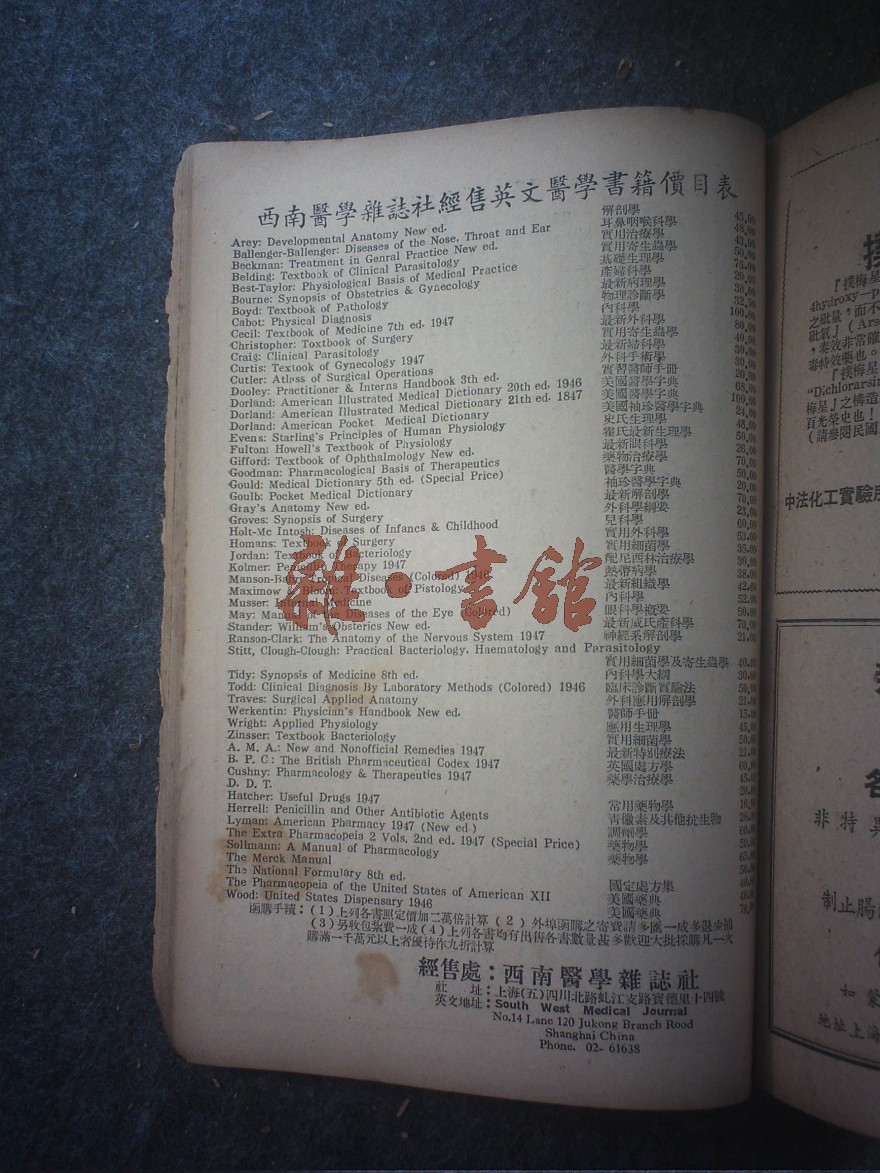 西南醫學雜誌社經售英文醫學書籍價目表
Arey: Developmental Anatomy New ed. 解剖學
Ballenger-Ballenger: Diseases of the Nose, Throat and Ear 耳鼻咽喉科學
Beckman: Treatment in Genral Practice New ed. 實用治療學
Belding: Textbook of Clinical Parasitology 實用寄生蟲學
Best-Taylor: Physiological Basis of Medical Practice 基礎生理學
Bourne: Synopsis of Obstetrics & Gynecology 產婦科學
Boyd: Textbook of Pathology 最新病理學
Cabot: Physical Diagnosis 物理診斷學
Cecil: Textbook of Medicine 7th ed. 1947 內科學
Christopher: Toxtbook of Surgery 最新外科學
Craig: Clinical Parasitology 實用寄生蟲學
Curtis: Textook of Gynecology 1947 最新婦科學
Cutler: Atlass of Surgical Operations 外科手術學
Dooley: Practitioner & Interns Handbook 3th ed. 實習醫師手冊
Dorland: American Illustrated Medical Dictionary 20th ed. 1946 美國醫學字典
Dorland: American Illustrated Medical Dictionary 21th ed. 1847 美國醫學字典
Dorland: American Pocket Medical Dictionary 美國袖珍醫學字典
Evens: Starling's Principles of Human Physiology 史氏生理學
Fulton: Howell's Textbook of Physiology 霍氏最新生理學
Gifford: Textbook of Ophthalmology New ed. 最新眼科學
Goodman: Pharmacological Basis of Therapeutics 藥物治療學
Gould: Medical Dictionary 5th ed. (Special Price) 醫學字典
Goulb: Pocket Medical Dictionary 袖珍醫學字典
Gray's Anatomy New ed. 最新解剖學
Groves: Synopsis of Surgery 外科學綱要
Holt-Mc Intosh: Diseases of Infancs & Childhood 兒科學
Homans: Textbook of Surgery 實用外科學
Jordan: Textbook of Bacteriology 實用細菌學
Kolmer: Penicillin Therapy 1947 配尼西林治療學
Manson-Bahr: Tropical Diseases (Colored) 1946 熱帶病學
Maximow & Bloom: Textbook of Pistology 最新組織學
Musser: Internal Medicine 內科學
May: Manual of the Diseases of the Eye (Colored) 眼科學概要
Stander: William's Obsterics New ed. 最新威氏產科學
Ranson-Clark: The Anatomy of the Nervous System 1947 神經系解剖學
Stitt, Clough-Clough: Practical Bacteriology, Haematology and Parasitology
實用細菌學及寄生蟲學 40.00
Tidy: Synopsis of Medicine 8th ed. 內科學大綱 30.00
Todd: Clinical Diagnosis By Laboratory Methods (Colored) 1946 臨床診斷實驗法 50.00
Traves: Surgical Applied Anatomy 外科應用解剖學
Werkentin: Physician's Handbook New ed. 醫師手冊
Wright: Applied Physiology 應用生理學
Zinsser: Textbook Bacteriology 實用細菌學
A. M. A.: New and Nonofficial Remedies 1947 最新特別療法
B. P. C.: The British Pharmaceutical Codex 1947 英國處方學
Cushny: Pharmacology & Therapeutics 1947 藥學治療學
D. D. T.
Hatcher: Useful Drugs 1947 常用藥物學
Herrell: Penicillin and Other Antibiotic Agents 青黴素及其他抗生物
Lyman: American Pharmacy 1947 (New ed.) 調劑學
The Extra Pharmacopeia 2 Vols. 2nd ed. 1947 (Special Price) 藥物學
Sollmann: A Manual of Pharmacology 藥物學
The Merck Manual
The National Formulary 8th ed. 國定處方集
The Pharmacopeia of the United States of American XII 美國藥典
Wood: United States Dispensary 1946 美國藥典
函購手續：(1)上列各書照定價加二萬倍計算 (2) 外埠函購之寄費請多匯一成多退少補
(3)另收包紮費一成(4)上列各書均有出售各書數量甚多歡迎大批採購凡一次
購滿一千萬元以上者優待作九折計算
經售處：西南醫學雜誌社
社 址：上海(五)四川北路虬江支路寶德里十四號
英文地址：South West Medical Journal
No.14 Lane 120 Jukong Branch Rood
Shanghai China
Phone. 02-61638
雜·書館
『撲梅星
4hydroxy—p
之砒量，而不
砒氧』(Ars
，奏效非常確
毒特效藥也。
『撲梅星
"Dichlorarsin
梅星』之構造
百光榮史也！
(請參閱民國
中法化工實驗
非特異
制止腸
如蒙
地址上海